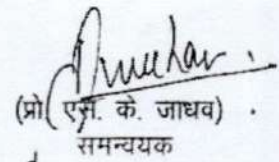 (प्रो. एस. के. जाधव)
समन्वयक